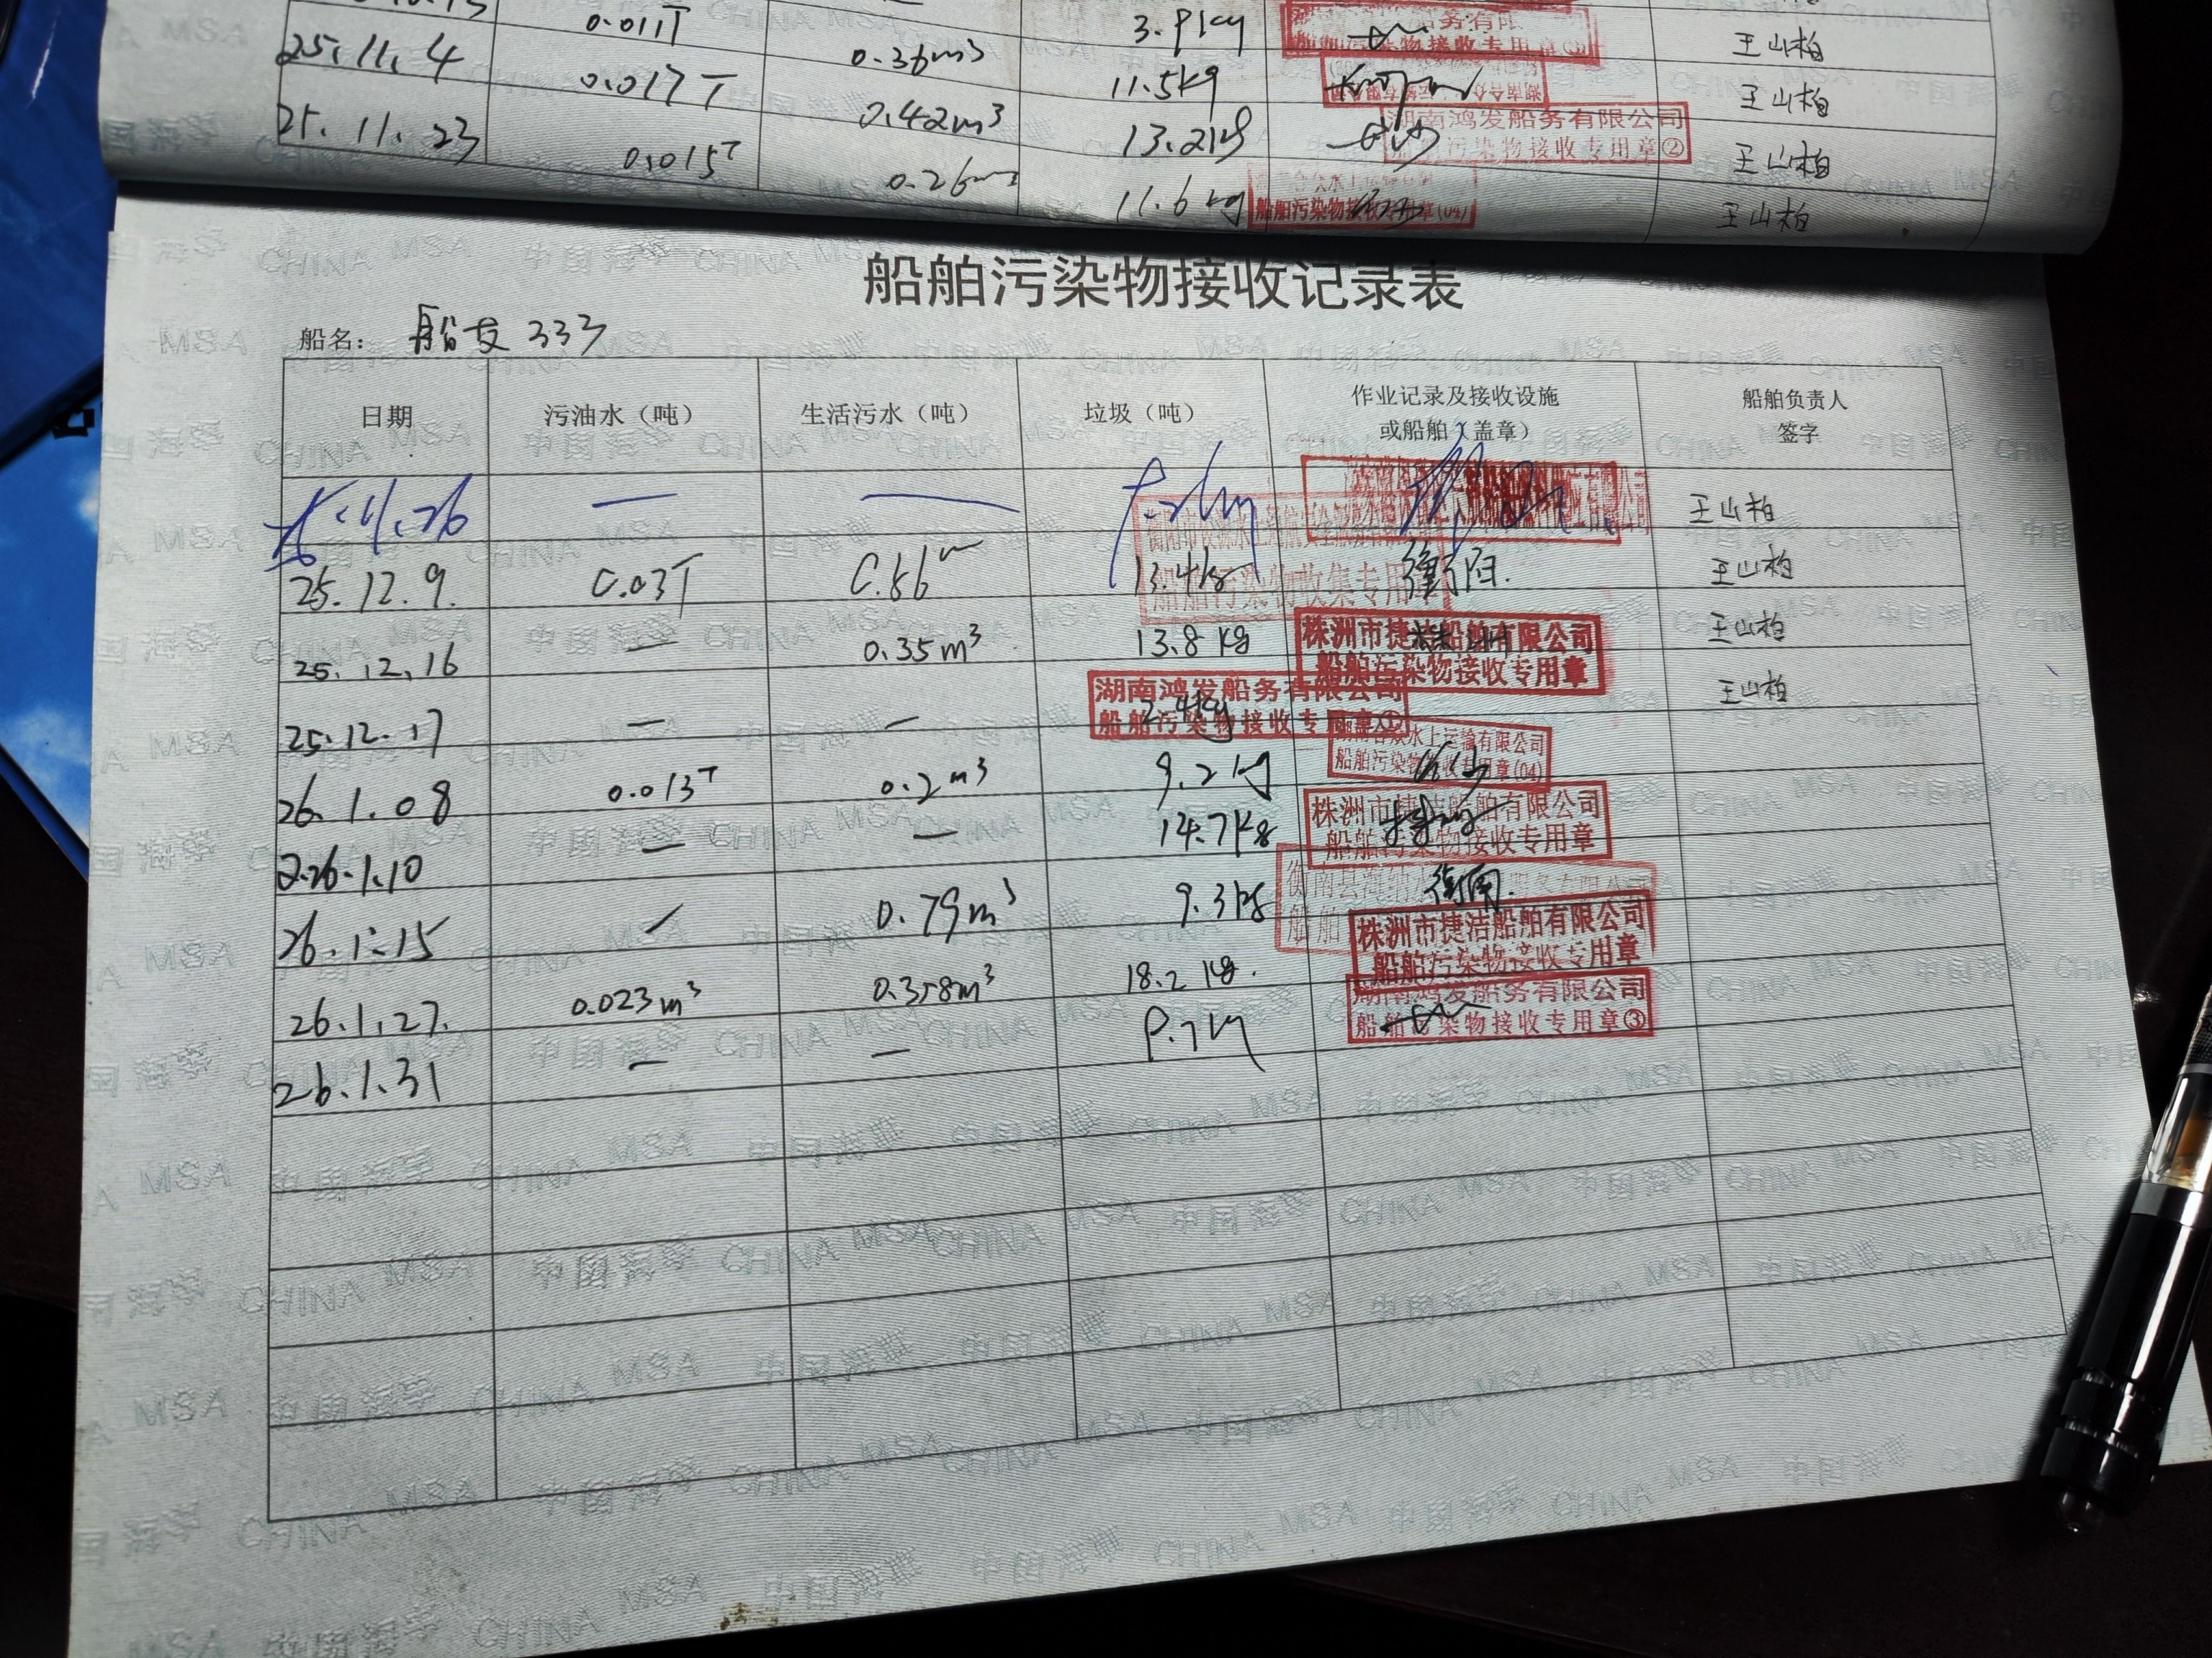 0.011T 3.9kg
25.11.4 0.017T 0.36m³ 11.5kg 王山柏
25.11.23 0.015T 0.42m³ 13.2kg 湖南鸿发船务有限公司 王山柏
船舶污染物接收专用章② 王山柏
0.26m³ 11.6kg 船舶污染物接收专用章(04) 王山柏
船舶污染物接收记录表
船名: 船友333
日期 污油水（吨） 生活污水（吨） 垃圾（吨） 作业记录及接收设施 船舶负责人
或船舶（盖章） 签字
11.26 — — 王山柏
25.12.9. 0.03T 13.4kg 衡阳. 王山柏
船舶污染物收集专用章
25.12.16 — 0.35m³ 13.8kg 株洲市捷洁船舶有限公司 王山柏
船舶污染物接收专用章
25.12.17 — — 2.4kg 湖南鸿发船务有限公司 王山柏
船舶污染物接收专用章①
26.1.08 0.013T 0.2m³ 9.2kg 水上运输有限公司
船舶污染物接收专用章(04)
2.26.1.10 — — 14.7kg 株洲市捷洁船舶有限公司
船舶污染物接收专用章
26.1.15 0.79m³ 9.3kg 衡南.
26.1.27. 0.023m³ 0.358m³ 18.2kg. 株洲市捷洁船舶有限公司
船舶污染物接收专用章
26.1.31 — — 湖南鸿发船务有限公司
船舶污染物接收专用章③